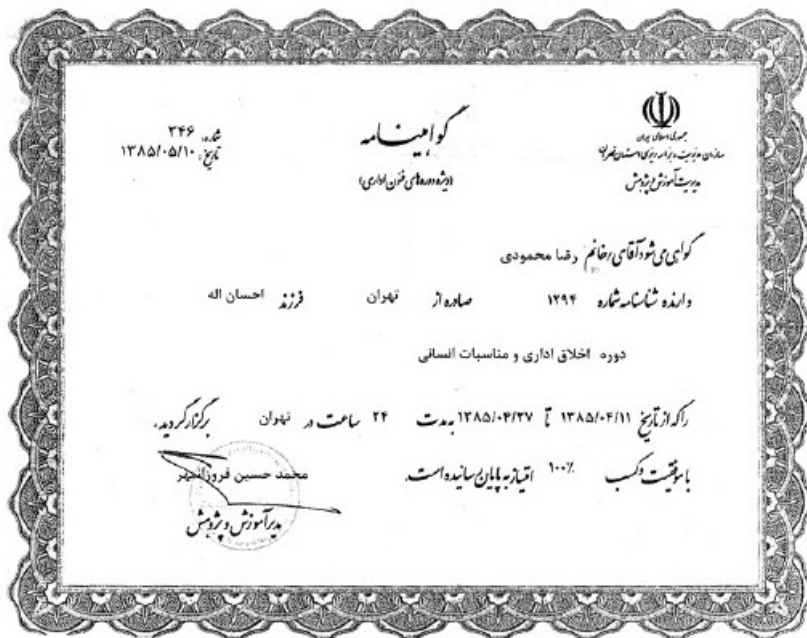 جمهوری اسلامی ایران
سازمان مدیریت و برنامه ریزی استان تهران
مدیریت آموزش و پژوهش
گواهینامه
(ویژه دوره‌های فنون اداری)
شماره: ۳۴۶
تاریخ: ۱۳۸۵/۰۵/۱۰
گواهی می شود آقای/خانم رضا محمودی
دارنده شناسنامه شماره ۱۲۹۴ صادره از تهران فرزند احسان اله
دوره اخلاق اداری و مناسبات انسانی
را که از تاریخ ۱۳۸۵/۰۴/۱۱ تا ۱۳۸۵/۰۴/۲۷ به مدت ۲۴ ساعت در تهران برگزار گردید،
با موفقیت و کسب ۱۰۰٪ امتیاز به پایان رسانیده است.
محمد حسین فروزانمهر
مدیر آموزش و پژوهش